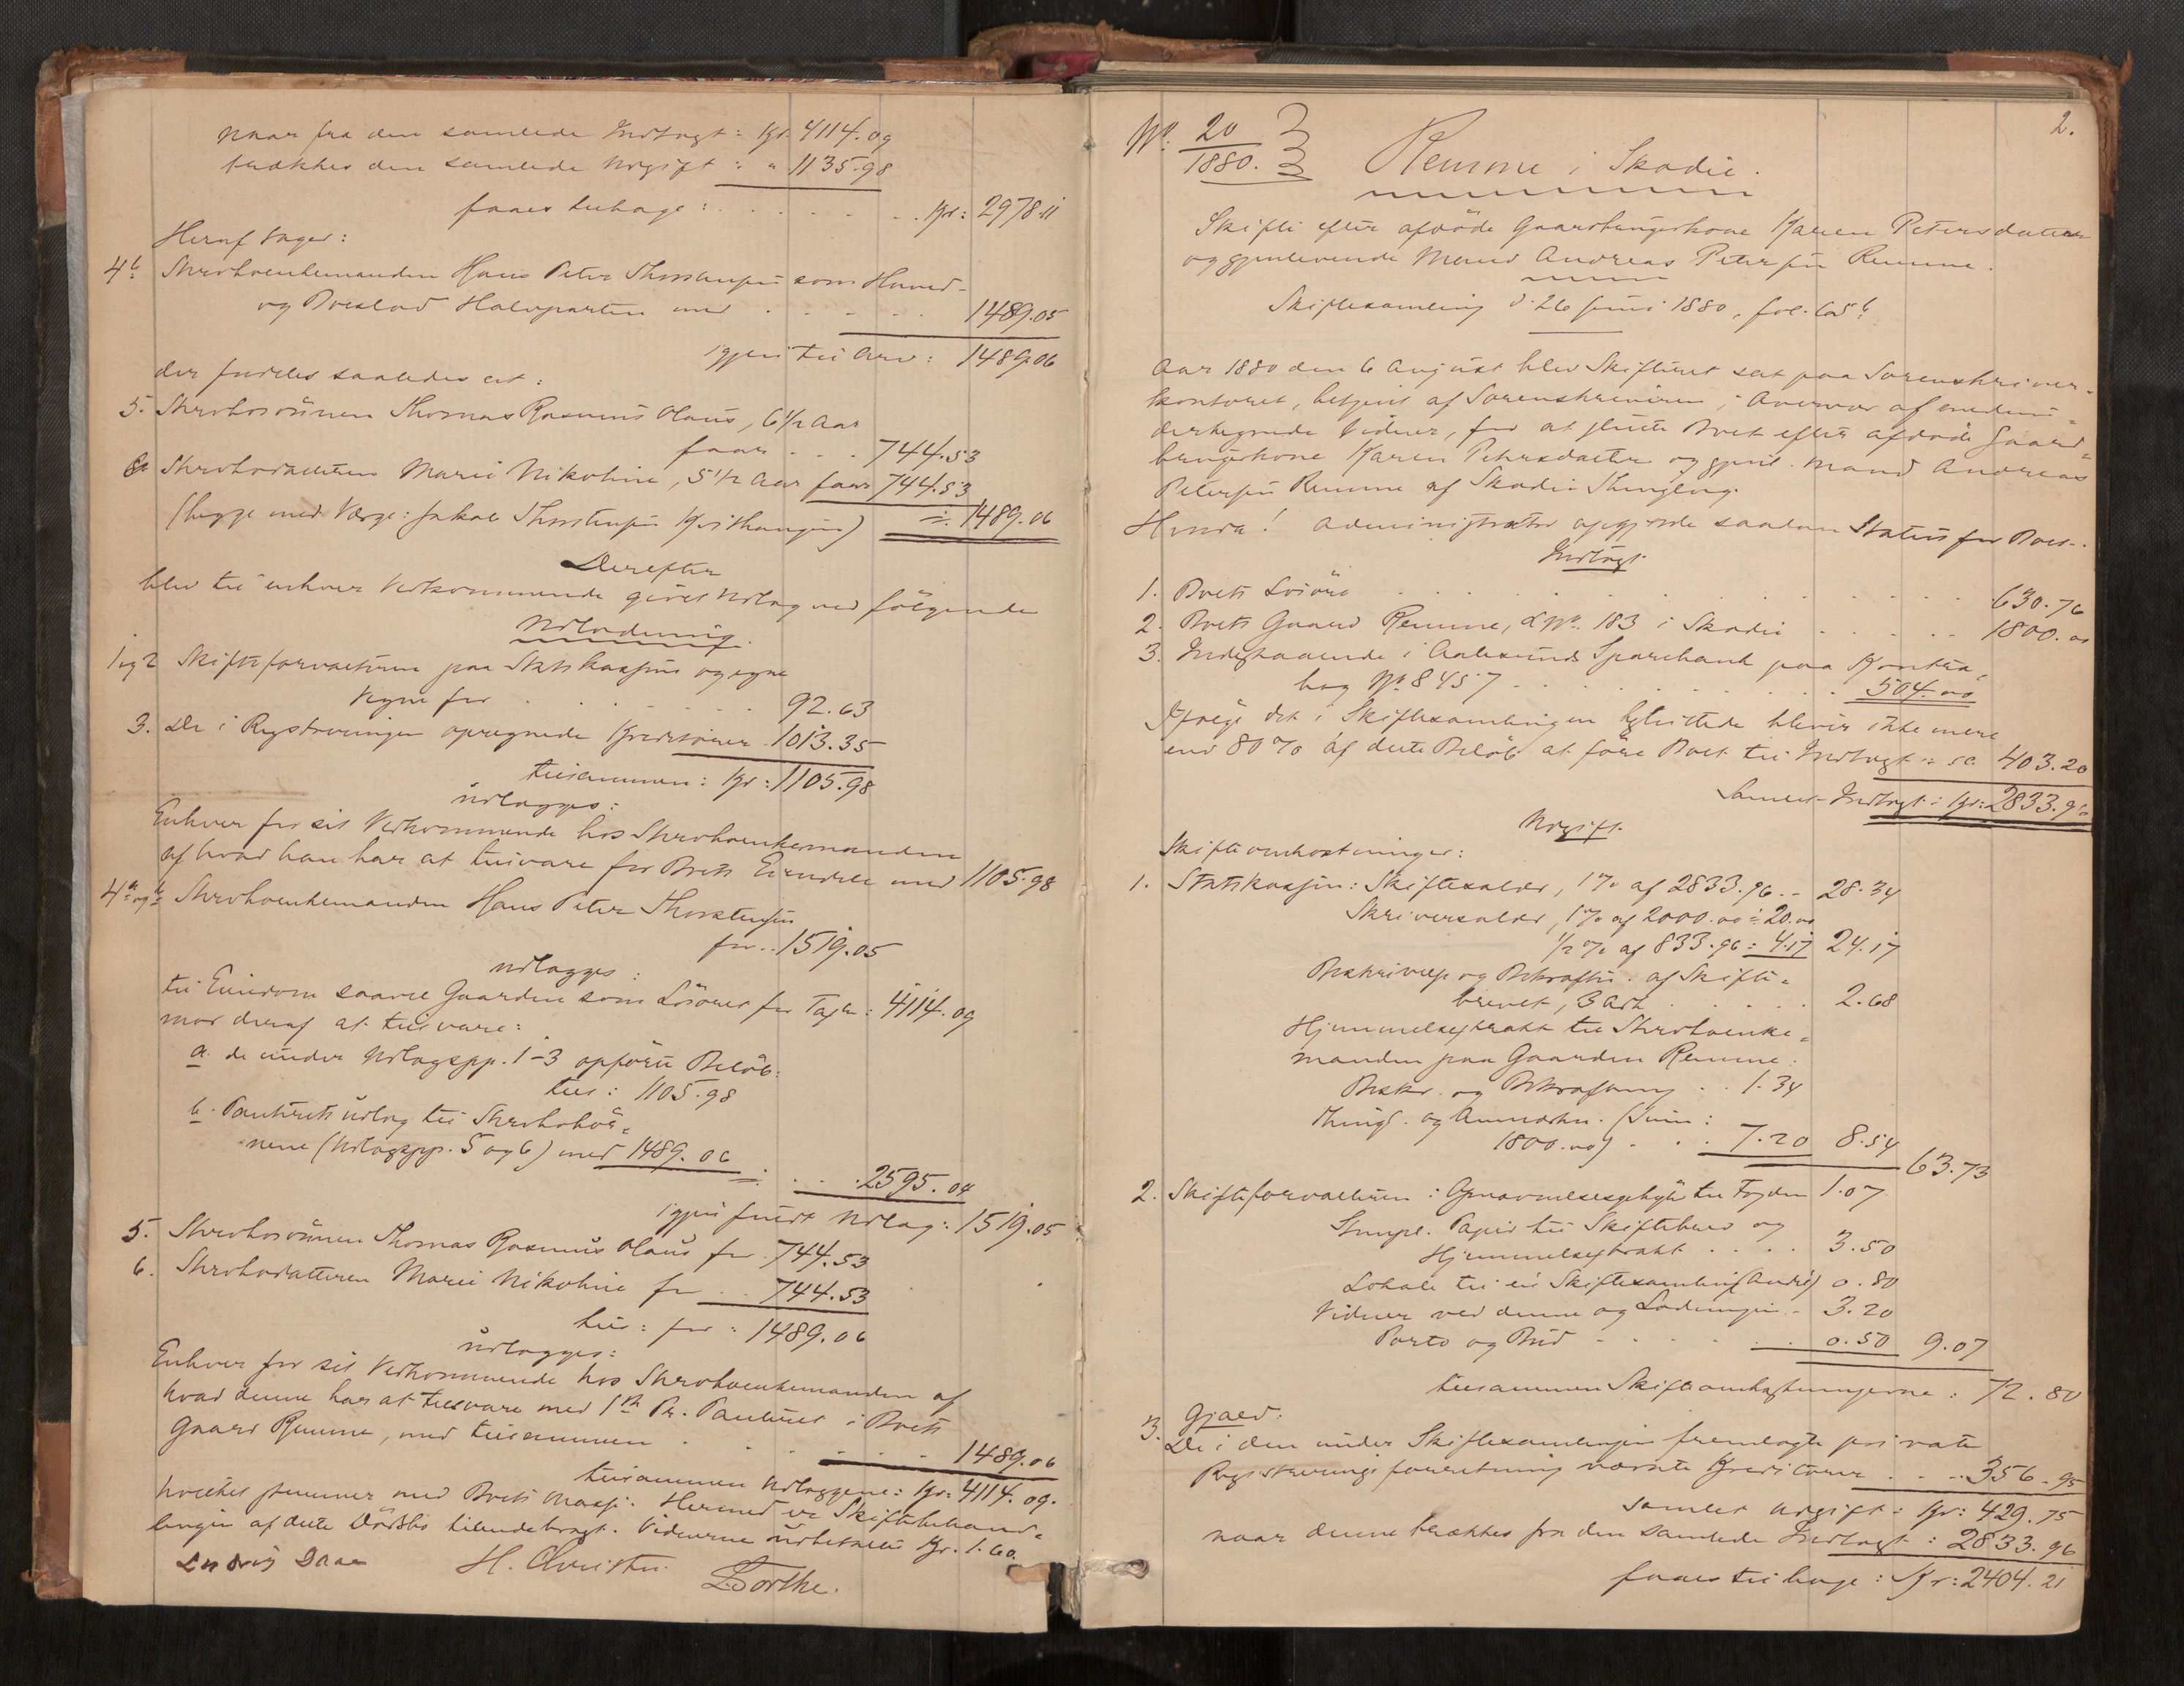 naar fra den samlede Indtægt: Kr. 4114.09
trækkes den samlede Udgift: " 1135.98
faaes tilbage: . . . . . . Kr: 2978.11
Heraf tager:
4b Sterboenkemanden Hans Peter Thorstensen som Hoved-
og Broslod Halvparten med . . . . . 1489.05
igjen til Arv: 1489.06
der fordeles saaledes at:
5. Sterbosønnen Thomas Rasmus Olaus, 6 1/2 Aar
faar . . . 744.53
6. Sterbodatteren Marie Nikoline, 5 1/2 Aar faar 744.53
(begge med Værge: Jakob Thorstensen) = 1489.06
Derefter
blev til enhver Vedkommende gjort Udlæg ved følgende
Udlodning.
1 og 2 Skifteforvalteren paa Statskassens og egne
Vegne for . . . . . . 92.63
3. De i Registreringen opregnede Kreditorer 1013.35
tilsammen: Kr: 1105.98
udlægges:
Enhver for sit Vedkommende hos Sterboenkemanden
af hvad han har at tilsvare for Boets Eiendele med 1105.98
4a og b Sterboenkemanden Hans Peter Thorstensen
for . . 1519.05
udlægges:
til Eiendom saavel Gaarden som Løsøret for Taxt: 4114.09
mod deraf at tilsvare:
a. de under Udlægspp. 1-3 opførte Beløb:
tils: 1105.98
b. Panteretsudlæg til Sterbobør-
nene (Udlægspp. 5 og 6) med 1489.06 . . . 2595.04
igjen fuldt Udlæg: 1519.05
5. Sterbosønnen Thomas Rasmus Olaus for 744.53
6. Sterbodatteren Marie Nikoline for . . 744.53
tils: for: 1489.06
udlægges:
Enhver for sit Vedkommende hos Sterboenkemanden af
hvad denne har at tilsvare med 1ste Pr. Panteret i Boets
Gaard Remme, med tilsammen . . . . . . 1489.06
tilsammen Udlæggene: Kr: 4114.09.
hvilket stemmer med Boets Masse. Hermed er Skiftebehand-
lingen af dette Dødsbo tilendebragt. Vidnerne udbetaltes Kr. 1.60.
Ludvig Daae H. Christie. Dorthe.
2.
No: 20/1880. Remme i Skodje.
Skifte efter afdøde Gaardbrugerkone Karen Petersdatter
og gjenlevende Mand Andreas Petersen Remme.
Skiftesamling d. 26 Juni 1880, fol. 605b
Aar 1880 den 6 August blev Skifteret sat paa Sorenskriver-
kontoret, betjent af Sorenskriveren, i Overvær af neden-
dertegnede Vidner, for at slutte Boet efter afdøde Gaard-
brugerkone Karen Petersdatter og gjenl. Mand Andreas
Petersen Remme af Skodje Thinglag.
Administrator opgjorde saadan Status for Boet.
Indtægt.
1. Boets Løsøre . . . . . . . . . . . 630.76
2. Boets Gaard Remme, L.No. 183 i Skodje . . . . . 1800.00
3. Indestaaende i Aalesunds Sparebank paa Kontra-
bog No 8457 . . . . . . . . 504.00
Ifølge det i Skiftesamlingen bliver ikke mere
end 80% af dette Beløb at føre Boet til Indtægt: 403.20
Samlet Indtægt: Kr: 2833.96
Udgift.
Skifteomkostninger:
1. Statskassen: Skiftesalær, 1% af 2833.96 - 28.34
Skriversalær, 1% af 2000.00 = 20.00
1/2% af 833.96 = 4.17 24.17
Beskrivelse og Bekræftn. af Skifte-
brevet, 3 Ark . . . . . . 2.68
Hjemmelsextrakt til Sterboenke-
manden paa Gaarden Remme.
Beskr. og Bekræftning . . 1.34
Thingl. og Anmærkn. (Sum:
1800.00) . . . 7.20 8.54
63.73
2. Skifteforvalteren: Opnævnelsesgebyr til Fogden 1.07
Stempl. Papir til Skiftebrev og
Hjemmelsextrakt . . . . 3.50
Lokale til en Skiftesamling (Andel) 0.80
Vidner ved denne og Lodningen . 3.20
Porto og Bud . . . . . . 0.50 9.07
tilsammen Skifteomkostningerne: 72.80
Gjæld:
3. De i den under Skiftesamlingen fremlagte private
Registreringsforretning nævnte Kreditorer . . . 356.95
samlet Udgift: Kr: 429.75
naar denne trækkes fra den samlede Indtægt: 2833.96
faaes tilbage: Kr: 2404.21